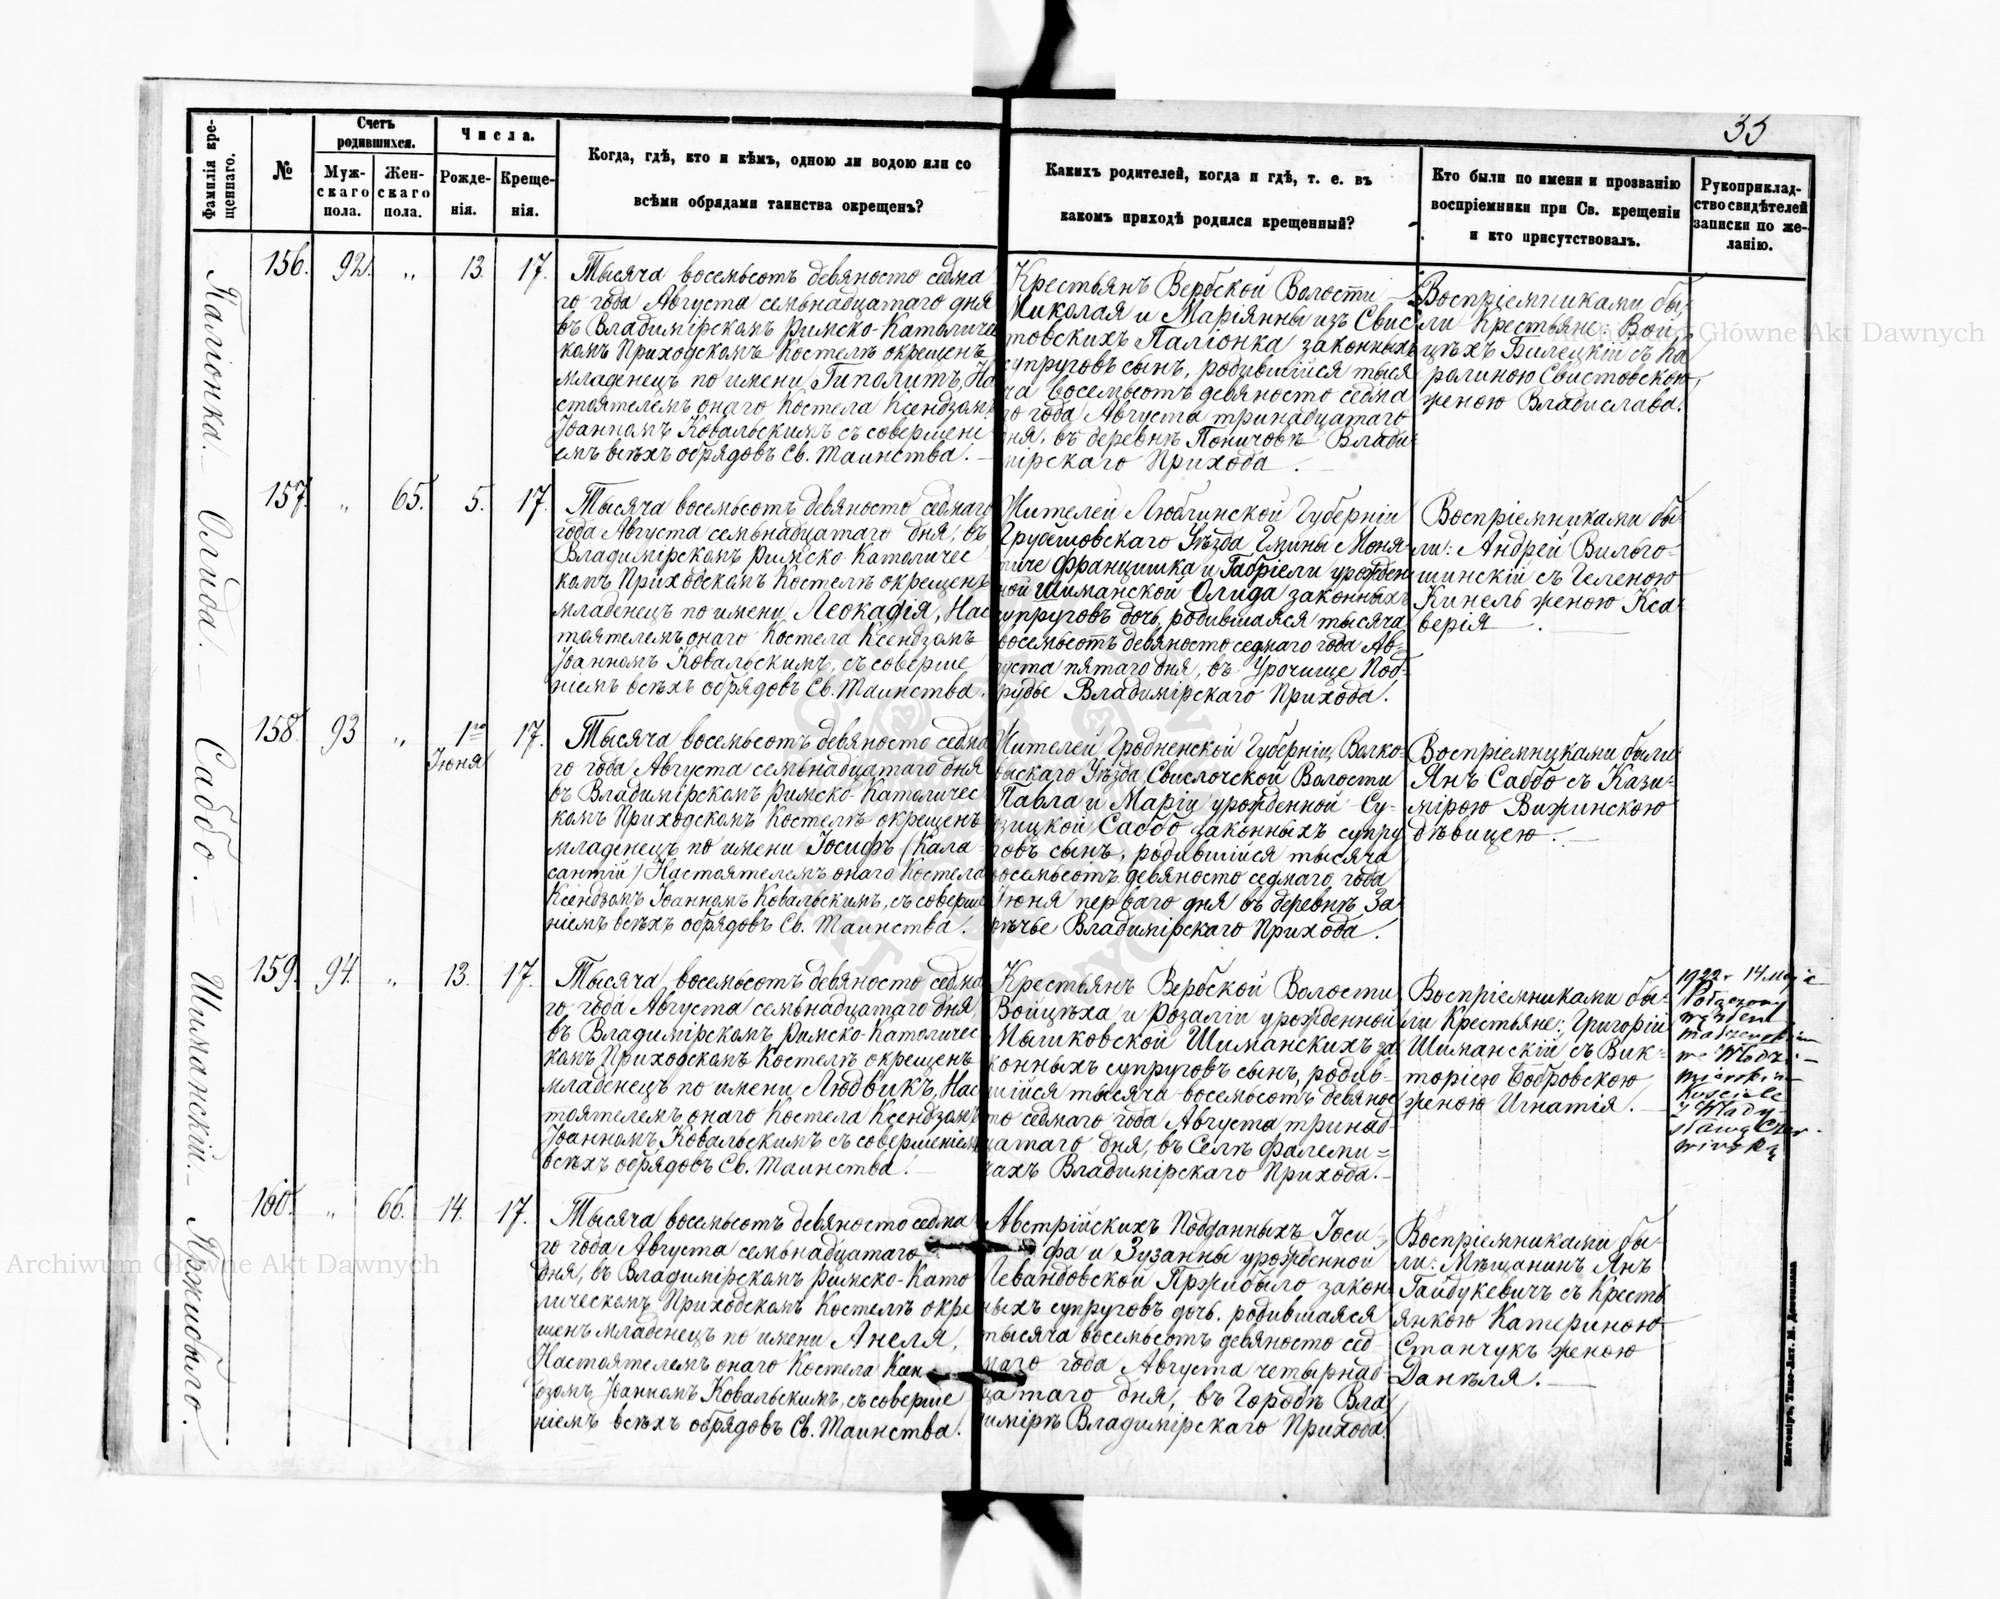 35
Фамилія кре-
щеннаго.
№
Счетъ
родившихся.
Муж-
скаго
пола.
Жен-
скаго
пола.
Числа.
Рожде-
нія.
Креще-
нія.
Когда, гдѣ, кто и кѣмъ, одною ли водою или со
всѣми обрядами таинства окрещенъ?
Какихъ родителей, когда и гдѣ, т. е. въ
какомъ приходѣ родился крещенный?
Кто были по имени и прозванію
воспріемники при Св. крещеніи
и кто присутствовалъ.
Рукоприклад-
ство свидѣтелей
записки по же-
ланію.
Паліонка.
156. 92. „ 13. 17.
Тысяча восемьсотъ девяносто седма
го года Августа семьнадцатаго дня
въ Владимірскомъ Римско-Католичес
комъ Приходскомъ Костелѣ окрещенъ
младенецъ по имени Гиполитъ, На
стоятелемъ онаго Костела Ксендзомъ
Іоанномъ Ковальскимъ съ совершені
емъ всѣхъ обрядовъ Св. Таинства.
Крестьянъ Вербской Волости
Николая и Маріянны изъ Свис
товскихъ Паліонка законныхъ
супруговъ сынъ, родившійся тыся
ча восемьсотъ девяносто седма
го года Августа тринадцатаго
дня, въ деревнѣ Поничовѣ Влади
мірскаго Прихода.
Воспріемниками бы
ли Крестьяне: Вой
цѣхъ Билецкій съ Ка
ролиною Свистовскою,
женою Владислава.
Олида.
157. „ 65. 5. 17.
Тысяча восемьсотъ девяносто седмаго
года Августа семьнадцатаго дня, въ
Владимірскомъ Римско-Католичес
комъ Приходскомъ Костелѣ окрещенъ
младенецъ по имени Леокадія, Нас
тоятелемъ онаго Костела Ксендзомъ
Іоанномъ Ковальскимъ, съ соверше
ніемъ всѣхъ обрядовъ Св. Таинства.
Жителей Люблинской Губерніи
Грубешовскаго Уѣзда Гмины Моня-
тиче Францишка и Габріели урожден
ной Шиманской Олида законныхъ
супруговъ дочь, родившаяся тысяча
восемьсотъ девяносто седмаго года Ав-
густа пятаго дня, въ Урочище Поб-
рудье Владимірскаго Прихода.
Воспріемниками бы-
ли: Андрей Вильго-
шинскій съ Геленою
Кинель женою Кса-
верія
Саббо.
158. 93 „ 1го 17.
Іюня
Тысяча восемьсотъ девяносто седма
го года Августа семьнадцатаго дня
въ Владимірскомъ Римско-Католичес
комъ Приходскомъ Костелѣ окрещенъ
младенецъ по имени Іосифъ (Кала
сантій) Настоятелемъ онаго Костела
Ксендзомъ Іоанномъ Ковальскимъ, съ соверше
ніемъ всѣхъ обрядовъ Св. Таинства.
Жителей Гродненской Губерніи, Волко-
выскаго Уѣзда Свислочской Волости
Павла и Маріи урожденной Су-
зицкой Саббо законныхъ супру
говъ сынъ, родившійся тысяча
восемьсотъ девяносто седмаго года
Іюня перваго дня въ деревнѣ За
рѣчье Владимірскаго Прихода.
Воспріемниками были
Янъ Саббо съ Кази-
мірою Вижинскою
дѣвицею.
Шиманскій.
159. 94. „ 13. 17.
Тысяча восемьсотъ девяносто седма
го года Августа семьнадцатаго дня,
въ Владимірскомъ Римско-Католичес
комъ Приходскомъ Костелѣ окрещенъ
младенецъ по имени Людвикъ, Нас
тоятелемъ онаго Костела Ксендзомъ
Іоанномъ Ковальскимъ съ совершеніемъ
всѣхъ обрядовъ Св. Таинства.
Крестьянъ Вербской Волости
Войцѣха и Розаліи урожденной
Мыликовской Шиманскихъ за
конныхъ супруговъ сынъ, родив-
шійся тысяча восемьсотъ девянос
то седмаго года Августа тринад
цатаго дня, въ Селѣ Фалеми-
чахъ Владимірскаго Прихода.
Воспріемниками бы-
ли Крестьяне: Григорій
Шиманскій съ Вик-
торіею Бобровскою
женою Игнатія.
1922 r 14 Maja
węzłem
małżeńskim
we Włodzi-
mierskim
Kościele
z Włady-
sławą
Пржибыло.
160. „ 66. 14. 17.
Тысяча восемьсотъ девяносто седма
го года Августа семьнадцатаго
дня, въ Владимірскомъ Римско-Като
лическомъ Приходскомъ Костелѣ окре
щенъ младенецъ по имени Анеля,
Настоятелемъ онаго Костела Ксен
дзомъ Іоанномъ Ковальскимъ, съ соверше
ніемъ всѣхъ обрядовъ Св. Таинства.
Австрійскихъ Подданныхъ Іоси
фа и Зузанны урожденной
Левандовской Пржибыло закон
ныхъ супруговъ дочь, родившаяся
тысяча восемьсотъ девяносто сед
маго года Августа четырнад
цатаго дня, въ Городѣ Вла
димірѣ Владимірскаго Прихода.
Воспріемниками бы-
ли: Мѣщанинъ Янъ
Гайдукевичъ съ Кресть
янкою Катериною
Станчукъ женою
Данѣля.
Archiwum Główne Akt Dawnych
Główne Akt Dawnych